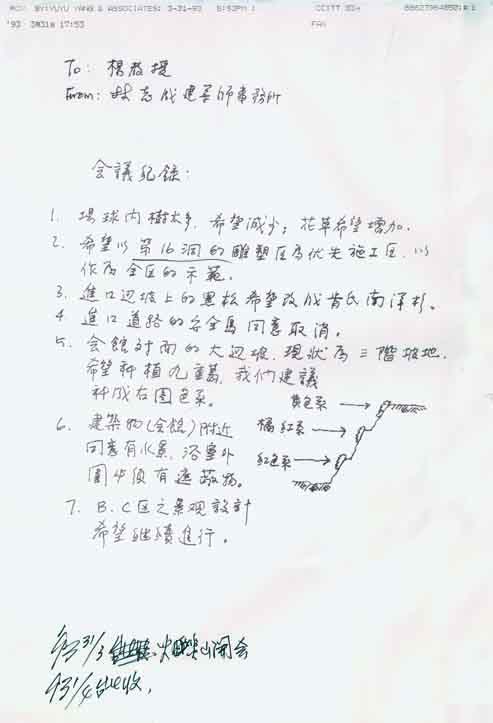 BY:YUYU YANG & ASSOCIATES; 3-31-93 ; 5:53PM ;
CCITT G3→
'93 3月31日 17:53
FAX
To: 楊教授
From: 林志成建築師事務所
会議紀錄:
1. 場球内樹太多,希望減少;花草希望增加.
2. 希望以第16洞的雕塑区為优先施工区,以
作為全区的示範.
3. 進口辺坡上的黑松希望改成肯氏南洋杉.
4. 進口道路的 同意取消.
5. 会館对面的大辺坡,現狀為三階坡地.
希望种植九重葛,我們建議
种成右图色系.
黄色系
橘紅系
紅色系
6. 建築物(会館)附近
同意有水景,浴室外
圍必須有遮蔽物.
7. B.C区之景观設計
希望継續進行.
31/3 山開会
1/4